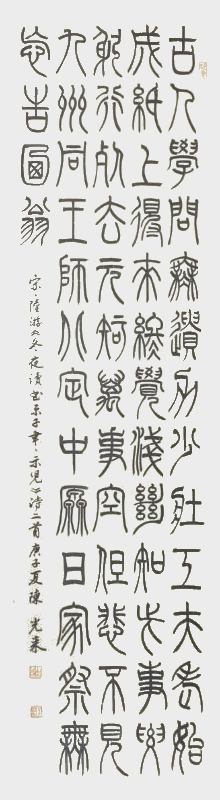 古人學問無遺力少壯工夫老始
成紙上得來終覺淺絕知此事要
躬行死去元知萬事空但悲不見
九州同王師北定中原日家祭無
忘告迺翁
宋·陸游《冬夜讀書示子聿·示兒》詩二首庚子夏陳光来